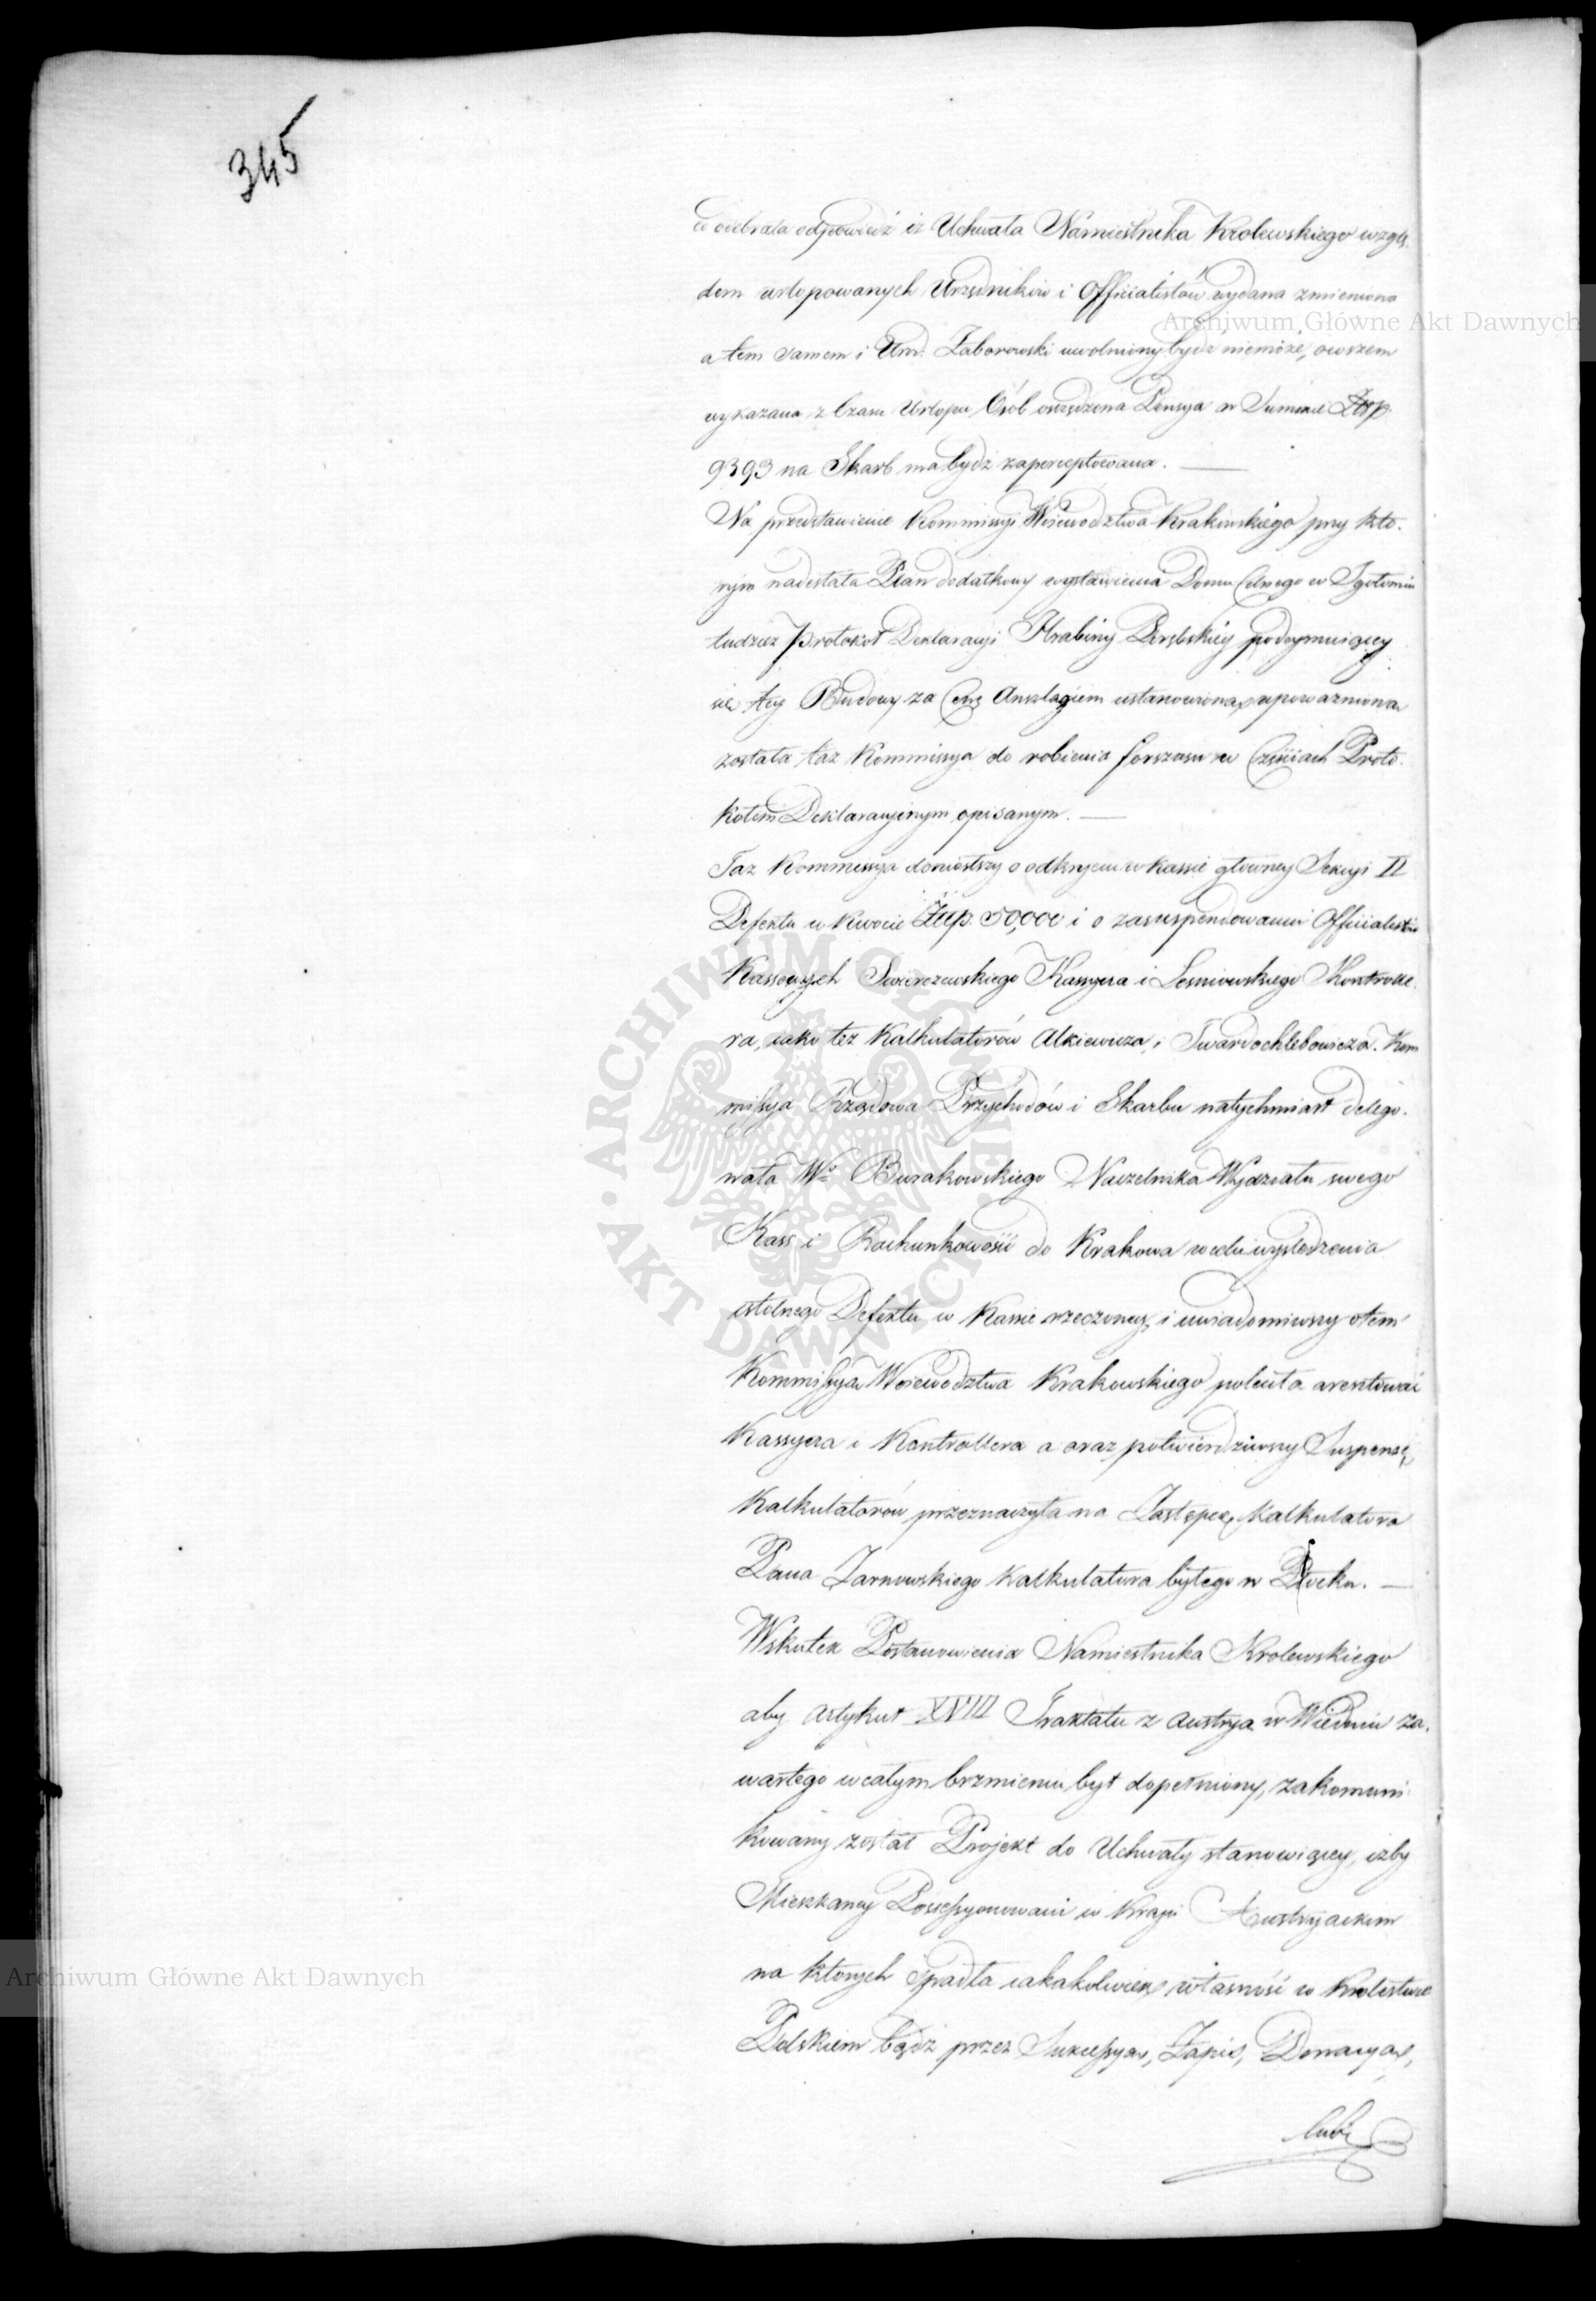 345
odebrała odpowiedź iż Uchwała Namiestnika Krolewskiego wzglę-
dem urlopowanych Urzędników i Officialistów wydana zmieniona
a tem samem i Urz. Zaborowski uwolniony bydź niemoże, owszem
wykazana z Czasu Urlopu Osób oszczędzona Pensya w Summie Złtp.
9393 na Skarb ma bydź zaperceptowana. —
Na przedstawienie Kommissyi Woiewodztwa Krakowskiego przy któ-
rym nadesłała Plan dodatkowy wystawienia Domu Celnego w Igołomii
tudzież Protokoł Deklaracyi Hrabiny Dembskiéy podeymuiącey
się tey Budowy za Cenę Anszlagiem ustanowioną, upoważniona
została taż Kommissya do robienia forszusu w Częściach Proto-
kołem Deklaracyinym opisanym. —
Taż Kommissya doniosłszy o odkryciu w Kassie główney Sekcyi II
Defektu w kwocie Złtp. 50,000 i o zasuspendowaniu Officialistów
Kassowych Swierczewskiego Kassyera i Lesniewskiego Kontrolle-
ra, iako też Kalkulatorów Alkiewicza, i Twardochlebowicza. Kom
missya Rządowa Przychodów i Skarbu natychmiast delego-
wała Wo Burakowskiego Naczelnika Wydziału swego
Kass i Rachunkowości do Krakowa w celu wyśledzenia
istotnego Defektu w Kassie rzeczoney, i uwiadomiwszy o tem
Kommissyą Woiewodztwa Krakowskiego poleciła aresztować
Kassyera i Kontrollera a oraz potwierdziwszy Suspensę
Kalkulatorów przeznaczyła na Zastępcę Kalkulatora
Pana Zarnowskiego Kalkulatora byłego w Płocku. —
Wskutek Postanowienia Namiestnika Krolewskiego
aby Artykuł XVIII Traktatu z Austryą w Wiedniu za-
wartego w całym brzmieniu był dopełniony, zakomuni-
kowany został Projekt do Uchwały stanowiący, iżby
Mieszkańcy Possessyonowani w Kraju Austryackim
na których spadła iakakolwiek własność w Krolestwie
Polskiem bądź przez Sukcessyą, Zapis, Donacyą,
lub
Archiwum Główne Akt Dawnych
Archiwum Główne Akt Dawnych
ARCHIWUM GŁÓWNE AKT DAWNYCH